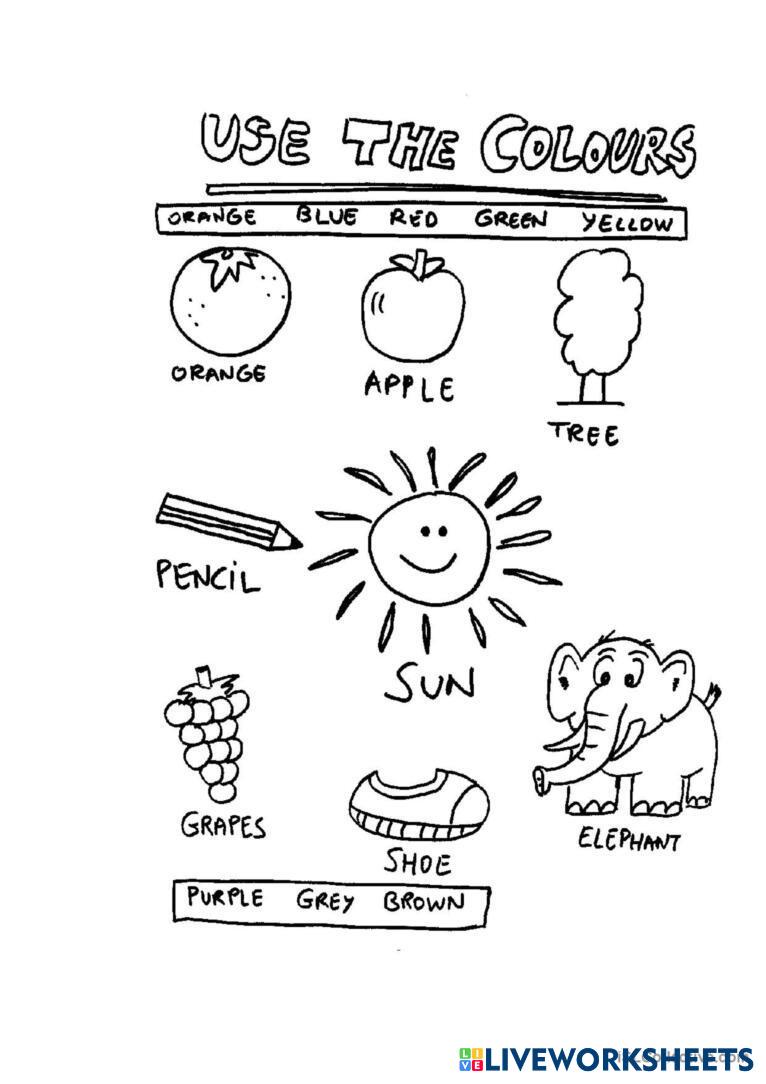 USE THE COLOURS
ORANGE BLUE RED GREEN YELLOW
ORANGE
APPLE
TREE
PENCiL
SUN
GRAPES
SHOE
ELEPHANT
PURPLE GREY BROWN
LIVE LIVEWORKSHEETS